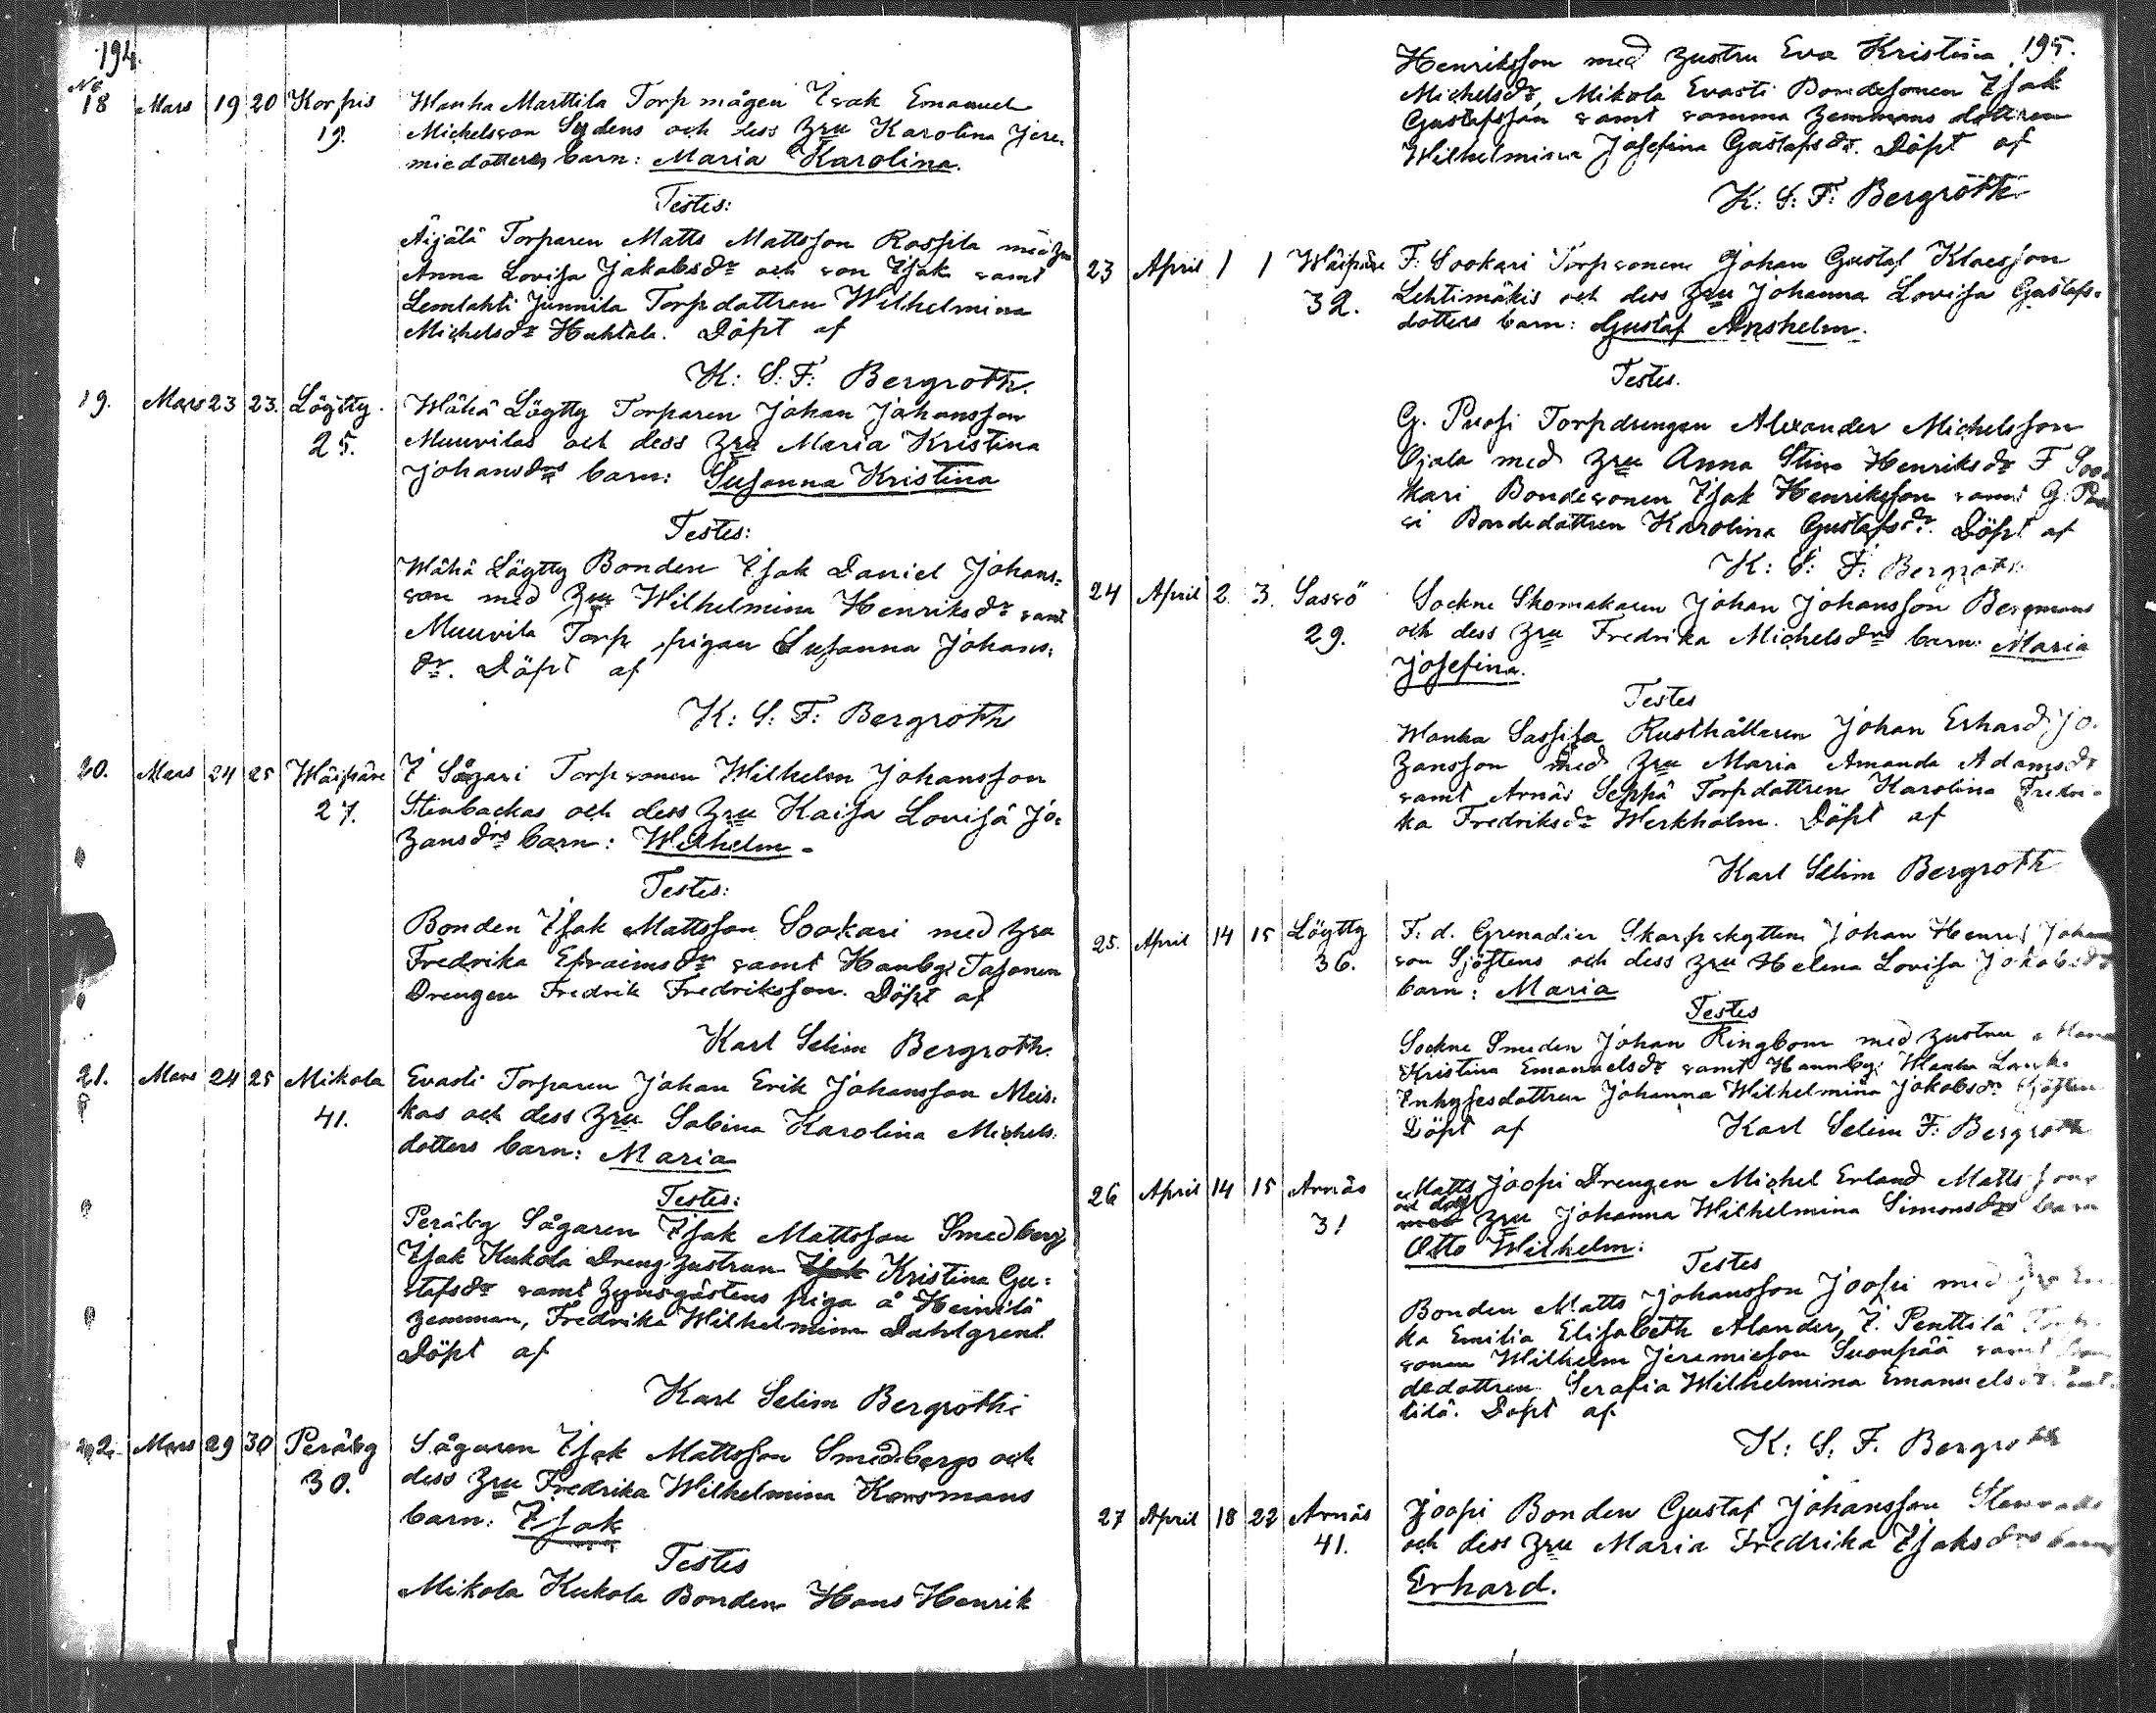 194.
No
18 Mars 19 20 Korpis Wanha Marttila Torpmågen Isak Emanuel
19. Michelsson Sydens och dess Hru Karolina Jere-
miedotters barn: Maria Karolina.
Testes:
Äijälä Torparen Matts Mattsson Rossila med Hru
Anna Lovisa Jakobsdr och son Isak samt
Lemlahti Junnila Torpdottren Wilhelmina
Michelsdr Huhtala. Döpt af
K: S: F: Bergroth.
19. Mars 23 23. Löytty. Wähä Löytty Torparen Johan Johansson
25. Muuvilas och dess Hru Maria Kristina
Johansdrs barn: Susanna Kristina
Testes:
Wähä Löytty Bonden Isak Daniel Johans-
son med Hru Wilhelmina Henriksdr samt
Muuvila Torp pigan Susanna Johans-
dr. Döpt af
K: S: F: Bergroth
20. Mars 24 25 Wäipäre I Sågari Torpsonen Wilhelm Johansson
27. Stenbackas och dess Hru Kaisa Lovisa Jo-
hansdrs barn: Wilhelm.
Testes:
Bonden Isak Mattsson Sookari med Hru
Fredrika Efraimsdr samt Hanbg: Tasonen
Drengen Fredrik Fredriksson. Döpt af
Karl Selim Bergroth.
21. Mars 24 25 Mikola Evasti Torparen Johan Erik Johansson Meis-
41. kas och dess Hru Sabina Karolina Michels-
dotters barn: Maria
Testes:
Peräby Sågaren Isak Mattsson Smedberg
Isak Kukola Dreng hustrun Isak Kristina Gu-
stafsdr samt Hyresgästens piga å Heinilä
hemman, Fredrika Wilhelmina Dahlgrent.
Döpt af
Karl Selim Bergroth:
22. Mars 29 30 Peräby Sågaren Isak Mattsson Smedbergs och
30. dess Hru Fredrika Wilhelmina Korsmans
barn: Isak
Testes
Mikola Kukola Bonden Hans Henrik
195.
Henriksson med hustru Eva Kristina
Michelsdr, Mikola Evasti Bondesonen Isak
Gustafsson samt samma hemmans dottren
Wilhelmina Josefina Gustafsdr. Döpt af
K: S: F: Bergroth
23 April 1 1 Wäipäre F: Sookari Torpsonen Johan Gustaf Klaesson
32. Lehtimäkis och dess Hru Johanna Lovisa Gustafs-
dotters barn: Gustaf Anshelm.
Testes.
G. Pussi Torpdrengen Alexander Michelsson
Ojala med Hru Anna Stina Henriksdr F Soo
kari Bondesonen Isak Henriksson samt G: Pus
si Bondedottren Karolina Gustafsdr. Döpt af
K: S: F: Bergroth
24 April 2. 3. Sassö Sockne Skomakaren Johan Johansson Bergmans
29. och dess Hru Fredrika Michelsdrs barn: Maria
Josefina.
Testes
Wanha Sassila Rusthållaren Johan Erhard Jo.
hansson med Hru Maria Amanda Adamsdr
samt Arnäs Seppä Torpdottren Karolina Fredri-
ka Fredriksdr Werkholm. Döpt af
Karl Selim Bergroth
25. April 14 15 Löytty F. d. Grenadier Skarpskytten Johan Henrik Johans
36. son Sjöstens och dess Hru Helena Lovisa Jakobsdrs
barn: Maria
Testes
Sockne Smeden Johan Ringbom med hustru
Kristina Emanuelsdr samt Hannbg: Wanha
Inhysesdottren Johanna Wilhelmina Jakobsdr Sjösten
Döpt af Karl Selim F: Bergroth
26 April 14 15 Arnäs Matts Joopi Drengen Michel Erland Mattssons
och dess
31 med Hru Johanna Wilhelmina Simonsdrs barn
Otto Wilhelm:
Testes
Bonden Matts Johansson Joopi med Hru
ka Emilia Elisabeth Alander, I. Penttilä Torp-
sonen Wilhelm Jeremiesson Suonpää samt
dedottren Serafia Wilhelmina Emanuelsdr
tilä. Döpt af
K: S: F. Bergroth
27 April 18 22 Arnäs Joopi Bonden Gustaf Johansson
41. och dess Hru Maria Fredrika Isaksdrs barn
Erhard.